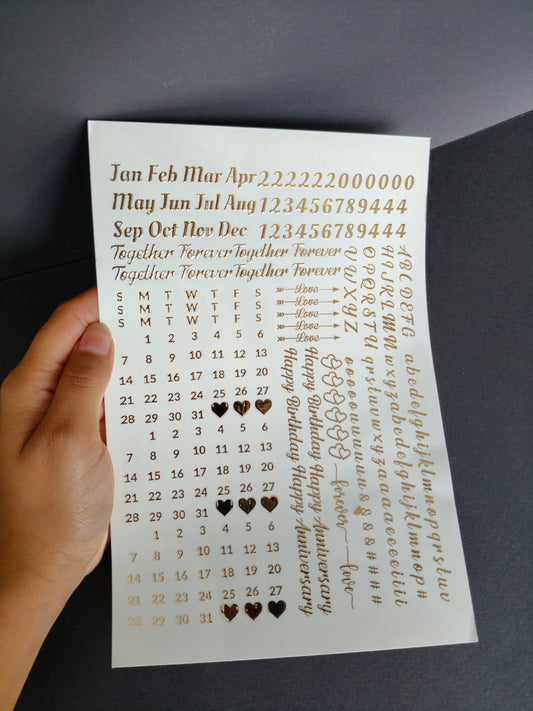 Jan Feb Mar Apr 222222000000
May Jun Jul Aug 123456789444
Sep Oct Nov Dec 123456789444
Together Forever Together Forever
Together Forever Together Forever
S M T W T F S
S M T W T F S
S M T W T F S
1 2 3 4 5 6
7 8 9 10 11 12 13
14 15 16 17 18 19 20
21 22 23 24 25 26 27
28 29 30 31
1 2 3 4 5 6
7 8 9 10 11 12 13
14 15 16 17 18 19 20
21 22 23 24 25 26 27
28 29 30 31
1 2 3 4 5 6
7 8 9 10 11 12 13
14 15 16 17 18 19 20
21 22 23 24 25 26 27
28 29 30 31
Love
Love
Love
Love
Happy Birthday Happy Anniversary
Happy Birthday Happy Anniversary
forever
love
A B C D E F G
H I J K L M N
O P Q R S T U
V W X Y Z
abcdefghijklmnopqrstuv